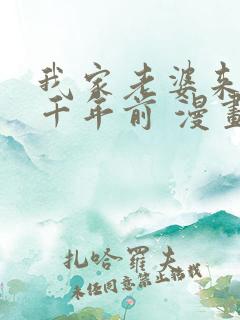 我家老婆来
千年前 漫畫
扎哈羅夫
未经同意禁止转载